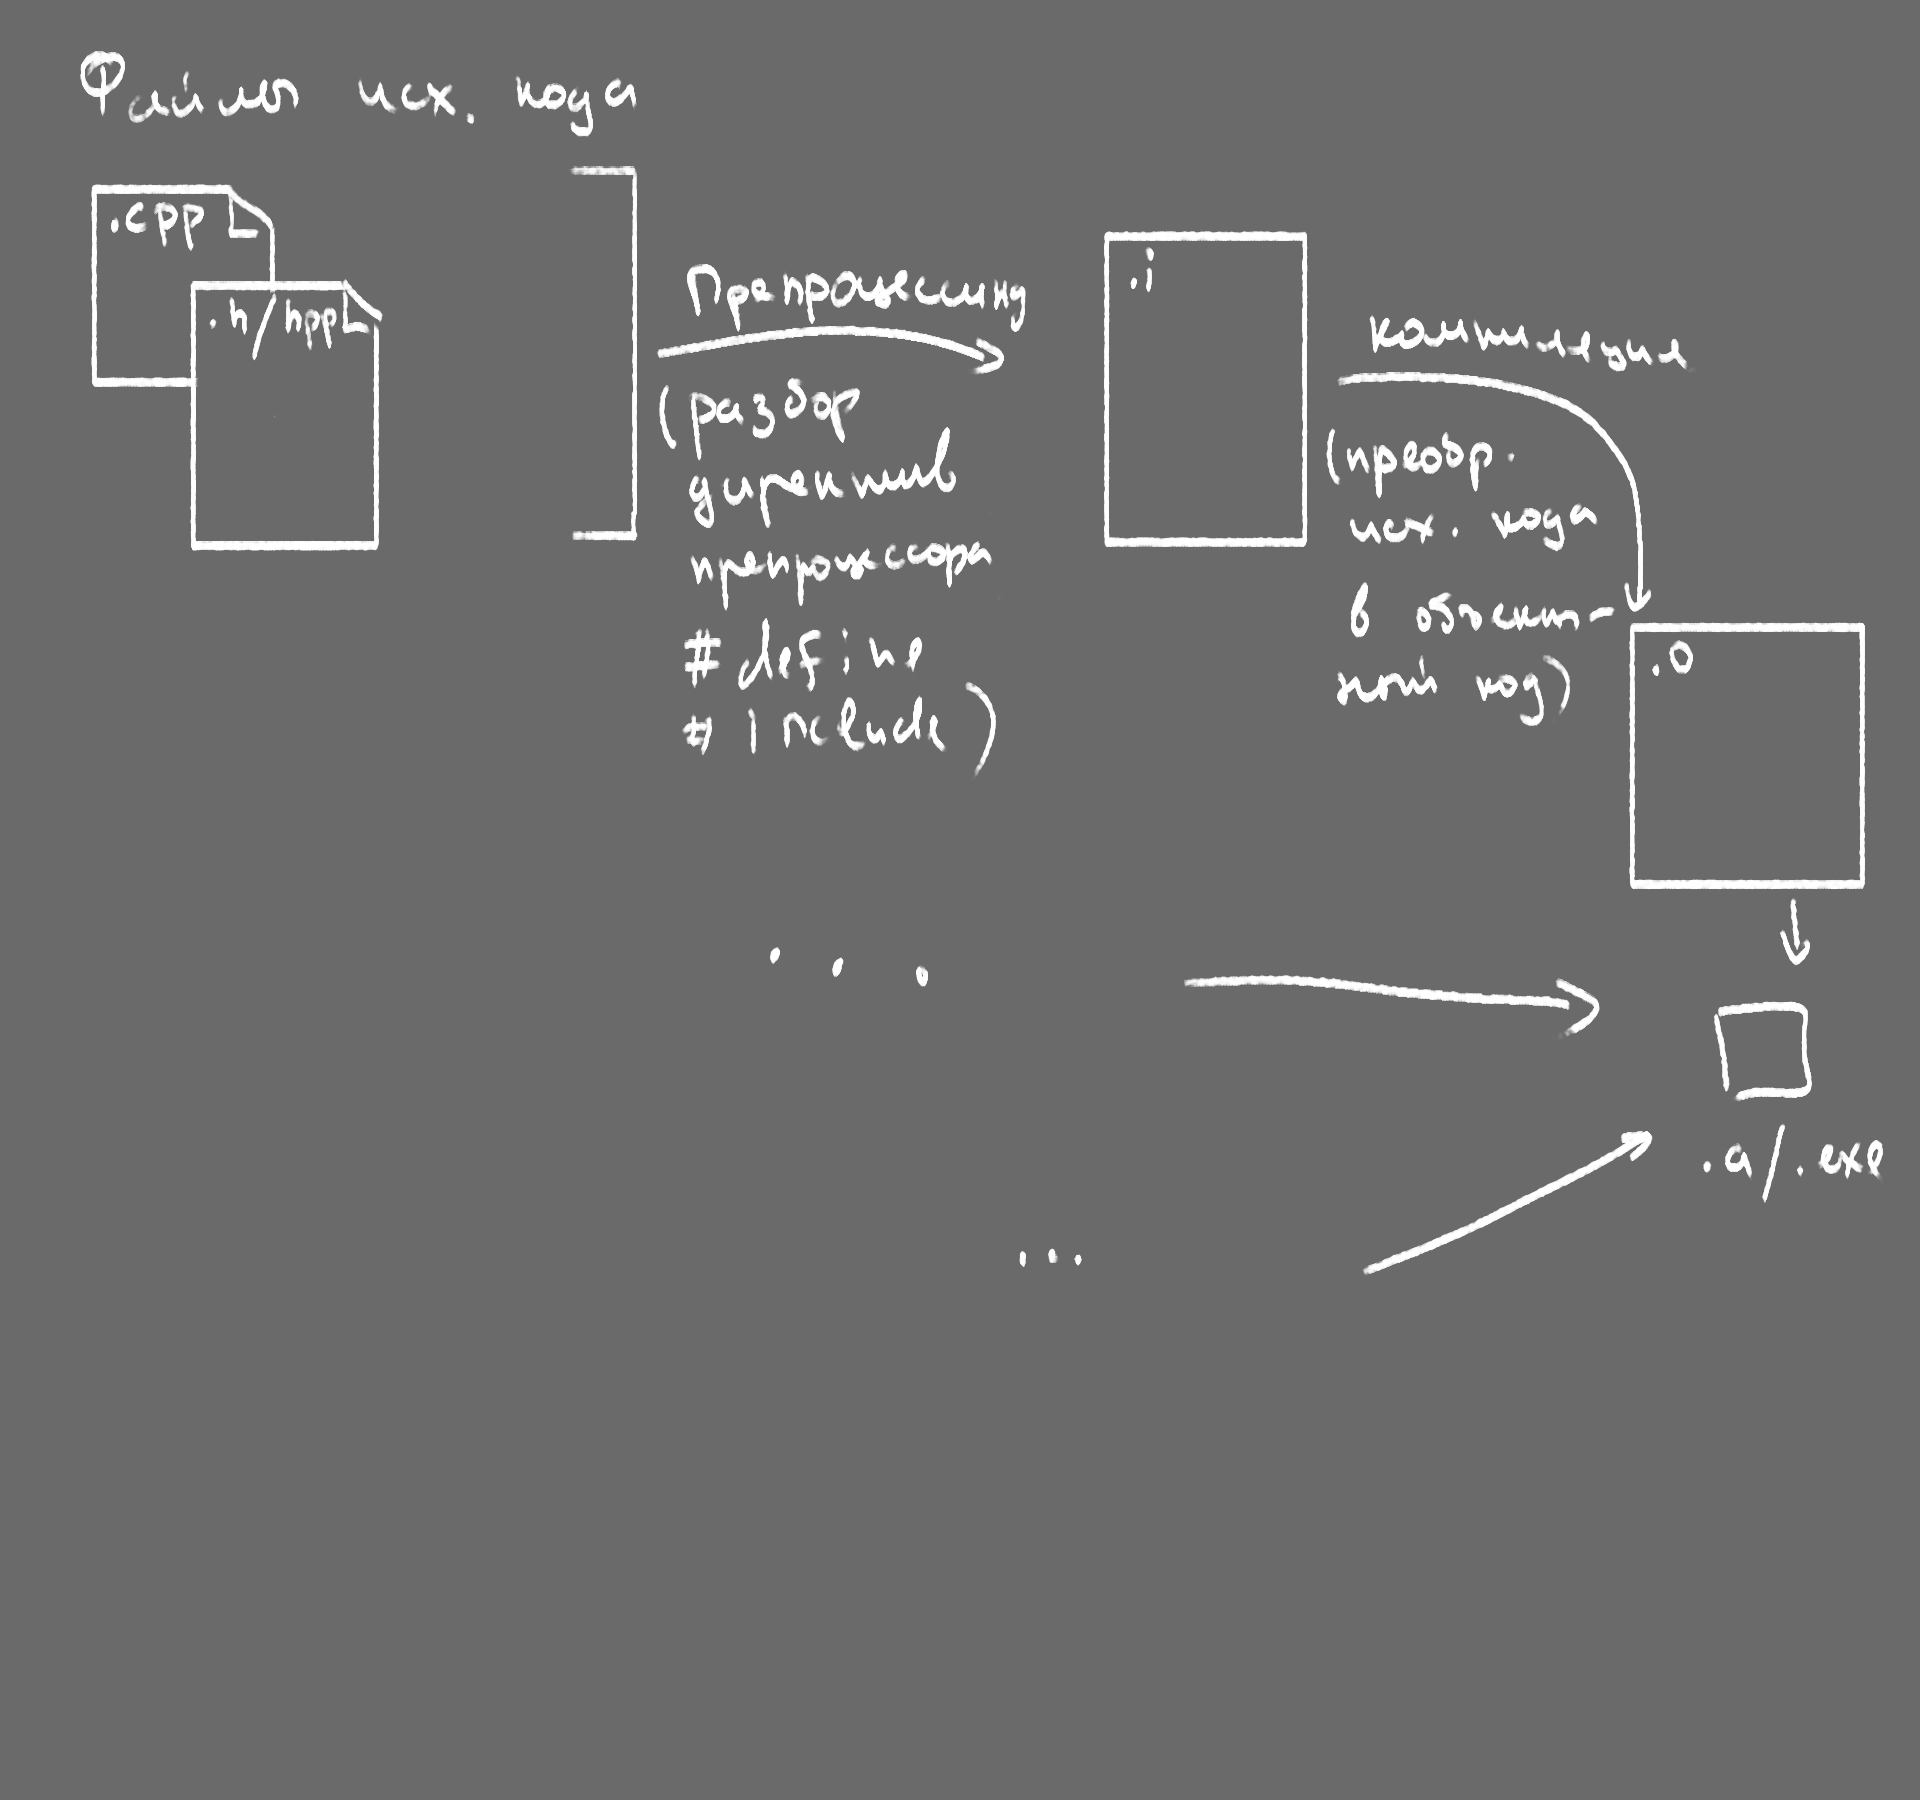 Файлы исх. кода
.cpp
.h/hpp
Препроцессинг
(разбор
директив
препроцессора
# define
# include)
.i
компиляция
(преобр.
исх. кода
в объект-
ный код)
.o
...
.a/.exe
...